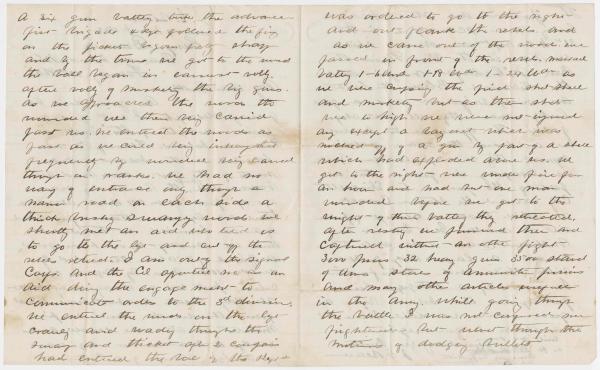 A six gun battery with the advance
first brigade & we followed the
on the picket
and by the time we got to the wood
the ball began in earnest volly
after volly of musketry the big guns.
As we approached the woods the
wounded were then being carried
past us. We entered the woods as
fast as we could being interrupted
frequency by wounded being carried
through our ranks. We had no
way of entrance only through a
narrow road on each side a
thick brushy swampy woods we
shortly met an aid who told us
to go to the left and cut off the
rebels retreat. I am only the signal
Corps. And the Col appointed me as an
Aid during the engagement to
Communicate orders to the 3d division.
We entered the woods on the left
crawling and wading through the
swamp and thicket after 2 companies
had entered the balance of the Regt
was ordered to go to the right
and out flank the rebels and
as we came out of the wood we
passed in front of the rebels masked
battery 1-6 lb and 1-18 1-24 as
we were crossing the field shot shell
and musketry but as they shot
too high we were not injured
any except a bayonet which was
knocked off of a gun by part of a shell
which had exploded above us. We
got to the right were under fire for
an hour and had not one man
wounded before we got to the
right of their battery they retreated.
After resting we pursued them and
captured without another fight
3000 prisoners 32 heavy guns 3500 stand
of arms stores of ammunition provisions
and many other articles
in the Army. While going through
the battle I was not
frightened but went through the
motions of dodging bullets